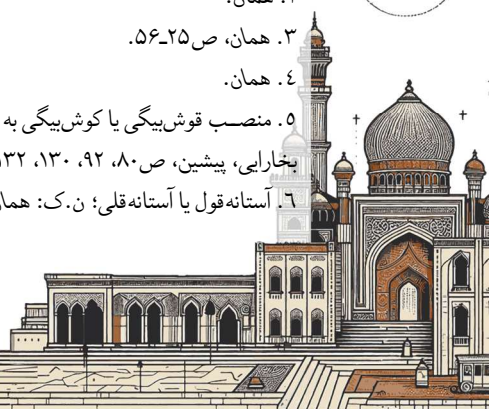 همان.
۳. همان، ص۲۵ـ۵۶.
۴. همان.
۵. منصب قوش‌بیگی یا کوش‌بیگی به
بخارایی، پیشین، ص۸۰، ۹۲، ۱۳۰، ۱۳۲
۶. آستانه‌قول یا آستانه‌قلی؛ ن.ک: همان